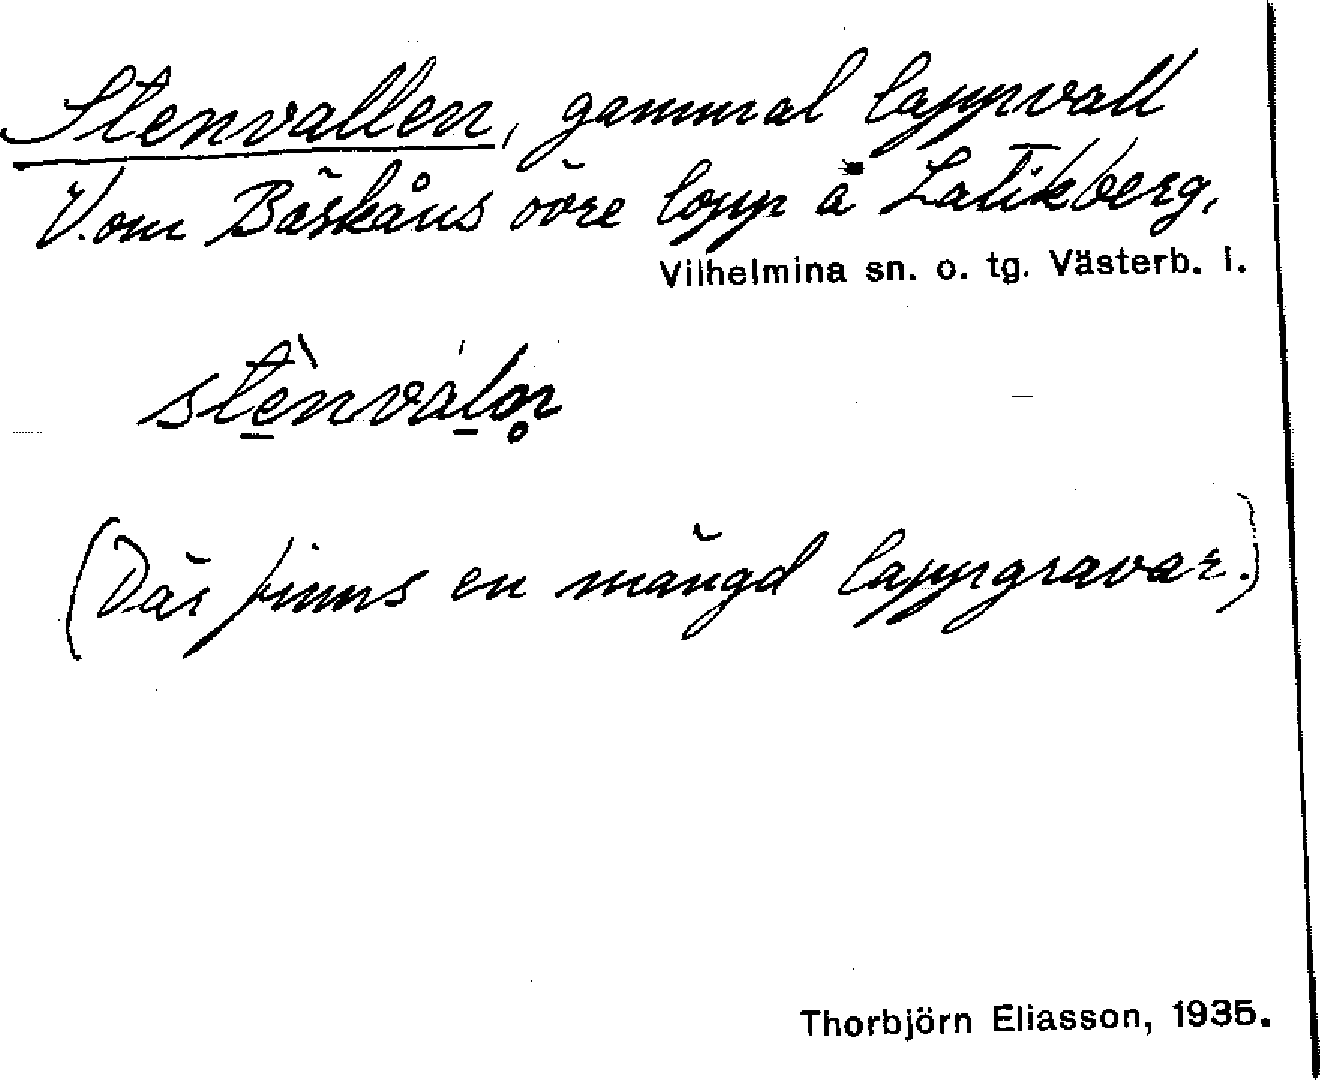 Stenvallen, gammal lappvall
V. om Bäskåns övre lopp å Latikberg,
Vilhelmina sn. o. tg. Västerb. l.
(Där finns en mängd lappgravar.)
Thorbjörn Eliasson, 1935.